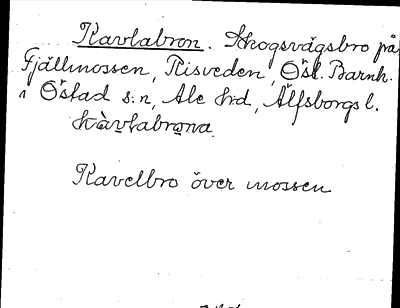 Kavlabron. Skogsvägsbro på
Fjällmossen, Risveden, Östl. Barnh.
i Östad s:n, Ale h:d, Älfsborgs l.
kàvlabrona.
Kavelbro över mossen